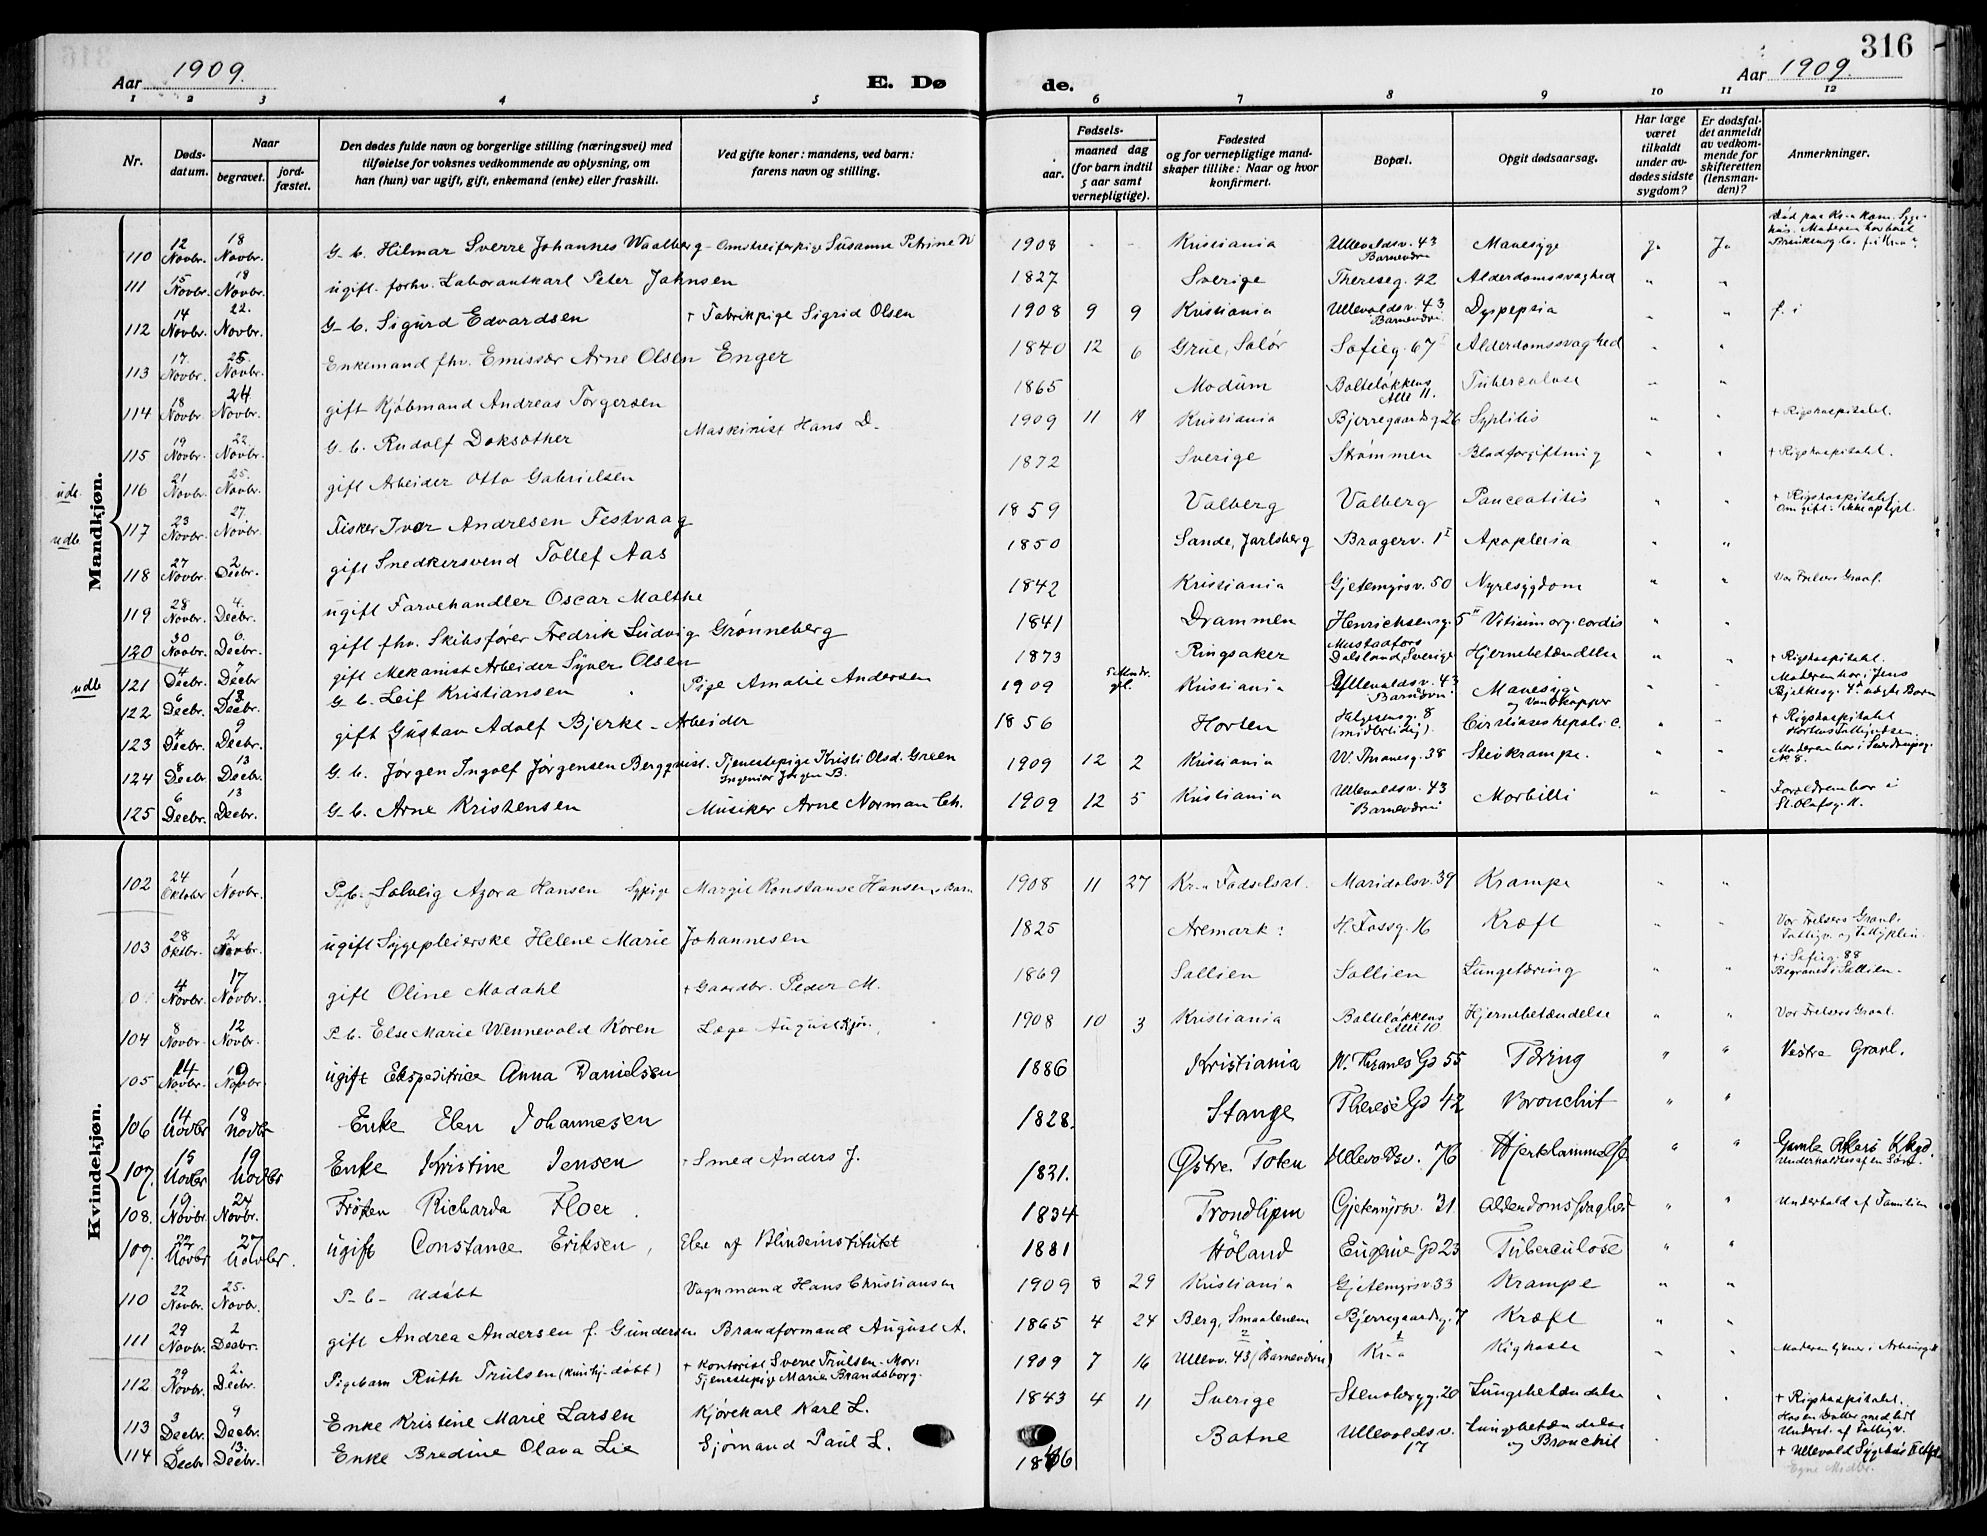 316
Aar 1909. E. Dø de. Aar 1909.
1 2 3 4 5 6 7 8 9 10 11 12
Nr. Døds-datum. Naar begravet. jord-fæstet. Den dødes fulde navn og borgerlige stilling (næringsvei) med tilføielse for voksnes vedkommende av oplysning, om han (hun) var ugift, gift, enkemand (enke) eller fraskilt. Ved gifte koner: mandens, ved barn: farens navn og stilling. Fødsels- aar. maaned dag (for barn indtil 5 aar samt vernepligtige). Fødested og for vernepligtige mandskaper tillike: Naar og hvor konfirmert. Bopæl. Opgit dødsaarsag. Har læge været tilkaldt under avdødes sidste sygdom? Er dødsfaldet anmeldt av vedkommende for skifteretten (lensmanden)? Anmerkninger.
Mandkjøn.
110 12 Novbr. 18 Novbr. G. b. Hilmar Sverre Johannes Waalberg - Susanne Petrine W 1908 - - Kristiania Ullevoldsv. 43 Barnevdn Mavesyge Ja Ja
111 15 Novbr. 18 Novbr. ugift. forhv. Laborantkarl Peter Johnsen 1827 Sverige Thereseg. 42 Alderdomssvaghed " "
112 14 Novbr. 22. Novbr. G. b. Sigurd Edvardsen + Fabrikpige Sigrid Olsen 1908 9 9 Kristiania Ullevoldsv. 43 Barnevdn. Dyspepsia " " f. i
113 17. Novbr. 25. Novbr. Enkemand fhv. Emissær Arne Olsen Enger 1840 12 6 Grue, Solør Sofieg. 67 Alderdomssvaghed " "
114 18 Novbr. 24 Novbr. gift Kjøbmand Andreas Torgersen 1865 Modum Bolteløkkens Alle 11. Tuberculose " "
115 19 Novbr. 22. Novbr. G. b. Rudolf Doksæther Maskinist Hans D. 1909 11 11 Kristiania Bjerregaardsg 26 Syphilis " " + Rigshospitalet.
udb. 116 21 Novbr. 25. Novbr. gift Arbeider Otto Gabrielsen 1872 Sverige Strømmen Blodforgiftning " " + Rigshospitalet.
udb 117 23 Novbr. 27. Novbr. Fisker Ivar Andresen Festvaag 1859 Valberg Valberg Pancreatitis " " + Rigshospitalet. Om gift: ikke oplyst.
118 27 Novbr. 2. Decbr. gift Snedkersvend Tollef Aas 1850 Sande, Jarlsberg Bragerv. 1 I Apoplexia " "
119 28 Novbr. 4. Decbr. ugift Farvehandler Oscar Malthe 1842 Kristiania Gjetemyrsv. 50 Nyresygdom " " Vor Frelsers Gravl.
120 30 Novbr. 6. Decbr. gift fhv. Skibsfører Fredrik Ludvig Grønneberg 1841 Drammen Henrichsensg. 5 II Vitium org. cordis " "
udb 121 4 Decbr. 7 Decbr gift Mekanisk Arbeider Syver Olsen 1873 Ringsaker Dalsland, Sverige Hjernebetændelse " " + Rigshospitalet.
122 6 Decbr. 13. Decbr. G. b. Leif Kristiansen Pige Amalie Andersen 1909 5 Mndr. gl. Kristiania Ullevoldsv. 43 Barnevdn. Mavesyge og Vandkopper " " Moderen bor i Jens Bjelkesg. 4
123 4 Decbr. 9 Decbr. gift Gustav Adolf Bjerke - Arbeider 1856 Horten Helgesensg. 8 (midlertidig). Cirrhosis hepatis c. " " + Rigshospitalet
124 8 Decbr. 13 Decbr. G. b. Jørgen Ingolf Jørgensen Bergqvist. Tjenestepige Kristi Olsd. Green Ingeniør Jørgen B. 1909 12 2 Kristiania W. Thranesg. 38 Stivkrampe. " " Moderen bor i Sverdrupsg. No 8.
125 6 Decbr. 13 Decbr. G. b. Arne Kristensen Musiker Arne Norman Ch. 1909 12 5 Kristiania Ullevoldsv. 43 Barnevdn Morbilli " " Forældrene bor i St. Olafsg. 11.
Kvindekjøn.
102 24 Oktober 1 Novbr. P. b. Solveig Azora Hansen Sypige Margit Konstanse Hansens Barn 1908 11 27 Kr.a Fødselsst. Maridalsv. 39 Krampe " "
103 28 Oktbr. 2 Novbr. ugift Sygepleierske Helene Marie Johannesen 1825 Aremark: N. Fossg. 16 Kræft " " Vor Frelsers Gravl. Fattigv. og Fattigplein.
0 4 Novbr. 17 Novbr. gift Oline Modahl + Gaardbr. Peder M. 1869 Sollien Sollien Lungetæring " " + i Sofieg. 88 Begravet i Sollien.
104 8 Novbr. 12 Novbr. P. b. Else Marie Wennevold Koren Læge August Kjør. 1908 10 3 Kristiania Bolteløkkens Alle 10 Hjernebetændelse " " Vor Frelsers Gravl.
105 14 Novbr. 19 Novbr. ugift Ekspeditrice Anna Danielsen 1886 Kristiania W. Thranes Gd 55 Tæring " " Vestre Gravl.
106 14 Novbr 18 Novbr Enke Elen Johannesen 1828. Stange Therese Gd 42 Bronchit " "
107. 15 Novbr 19 Novbr Enke Kristine Jensen + Smed Anders J. 1831. Østre Toten Ullevoldsv. 76 Hjertelammelse " " Gamle Akers Kkgd. Underholdtes af en Søn.
108. 19 Novbr. 24 Novbr. Frøken Richarda Floer. 1834 Trondhjem Gjetemyrsv. 31 Alderdomssvaghed " " Underhold af Familien
109. 22 Novbr 27 Novbr. ugift Constance Eriksen, Elev af Blindeinstitutet 1881 Høland Eugenie Gd 23 Tuberculose " "
110 22 Novbr. 25. Novbr. P - b - Udøbt Vognmand Hans Christiansen 1909 8 29 Kristiania Gjetemyrsv. 33 Krampe " "
111 29 Novbr. 2 Decbr. gift Andrea Andersen f. Gundersen Brandformand August A. 1865 4 24 Berg, Smaalenene Bjerregaardsg. 7 Kræft " "
112 29 Novbr. 2. Decbr. Pigebarn Ruth Trulsen (kun hj. døbt) + Kontorist Sverre Trulsen - Mor: Tjenestepige Marie Brandsborg. 1909 7 16 2 Ullevv. 43 (Barnevdn) 1 Kr.a Kighoste " "
113 3 Decbr. 9 Decbr. Enke Kristine Marie Larsen Kjørekarl Karl L. 1843 4 11 Sverige Stensbergg. 20 Lungebetændelse " " + Rigshospitalet.
114 7 Decbr 13. Decbr. Enke Bredine Olava Lie Sjømand Paul L. 1846 Botne Ullevoldsv. 17 Lungebetændelse og Bronchit + Ullevold Sygehus Egne Midler.